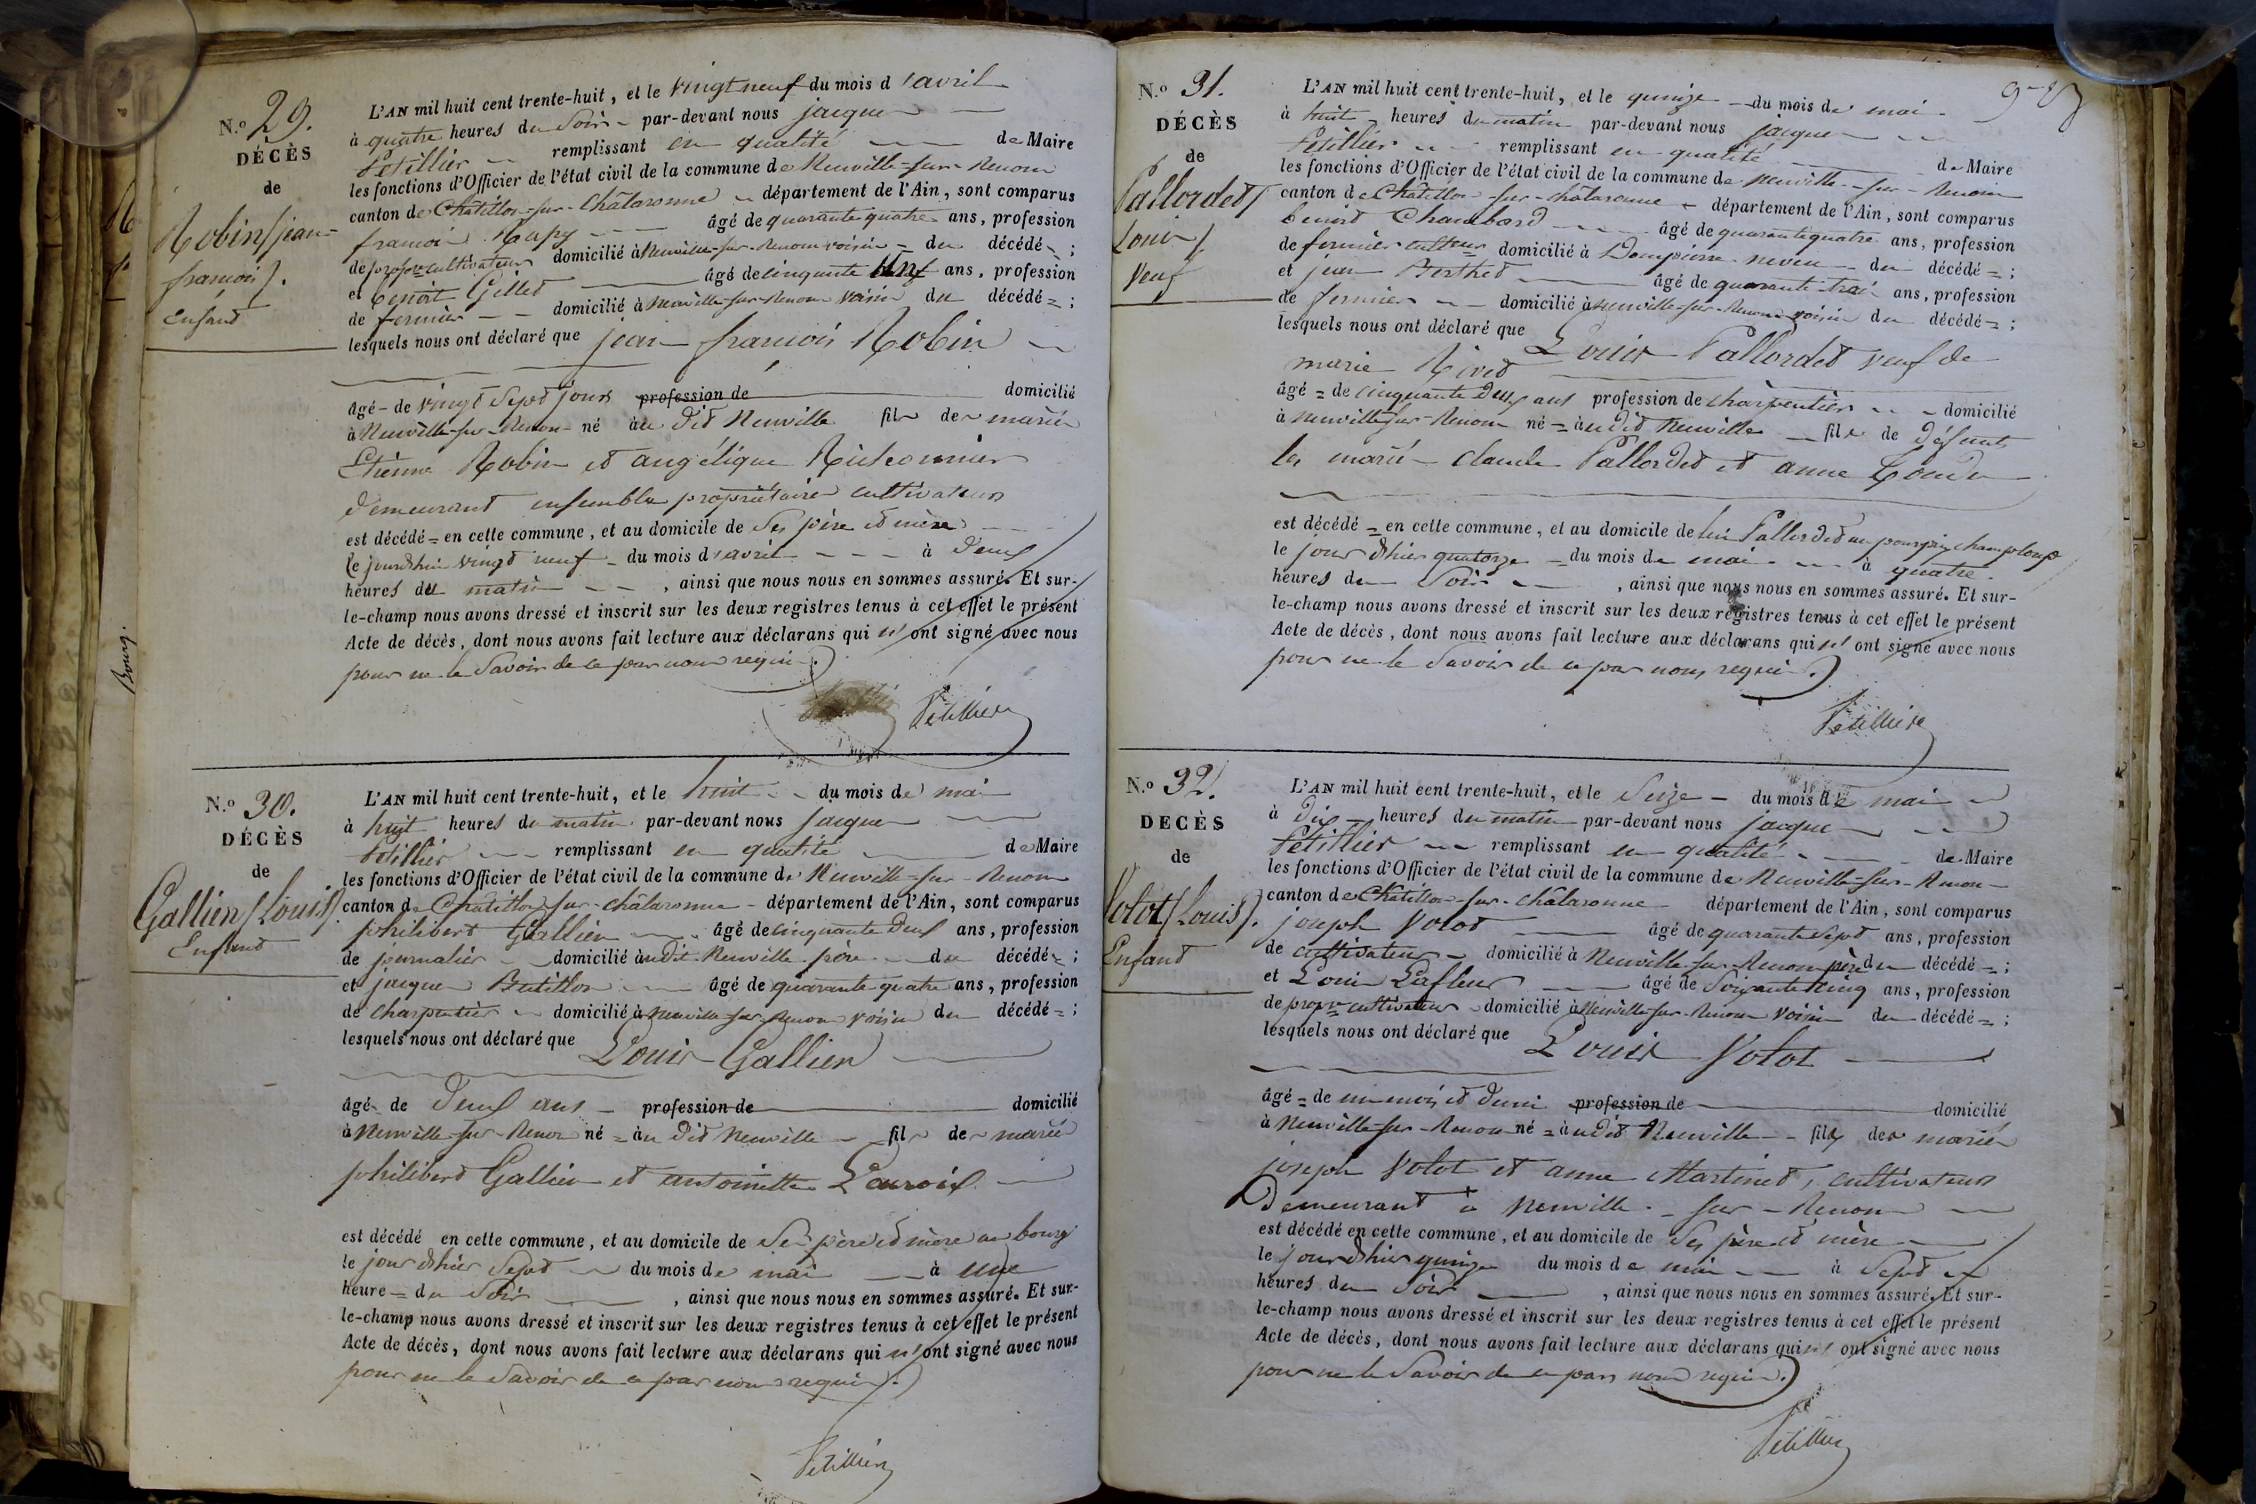 N.o 29.
DÉCÈS
de
Robin (jean-
francois).
Enfant
L'AN mil huit cent trente-huit, et le vingt neuf du mois d'avril
à quatre heures du Soir par-devant nous jacques
Petillier remplissant en qualité de Maire
les fonctions d'Officier de l'état civil de la commune de Neuville-sur-Renom
canton de Châtillon-sur-Châlaronne département de l'Ain, sont comparus
francois âgé de quarante quatre ans, profession
de propre cultivateur domicilié à Neuville-sur-Renom voisin du décédé ;
et benoit Gillet âgé de cinquante ans, profession
de fermier domicilié à Neuville-sur-Renom voisin du décédé = ;
lesquels nous ont déclaré que jean francois Robin
âgé de vingt Sept jours profession de domicilié
à Neuville-sur-Renom né au dit Neuville fils de mariés
Etienne Robin et angélique
demeurant ensemble propriétaires cultivateurs
est décédé = en cette commune, et au domicile de Ses père et mère
le jourdhui vingt neuf du mois d'avril à deux
heures du matin , ainsi que nous nous en sommes assuré. Et sur-
le-champ nous avons dressé et inscrit sur les deux registres tenus à cet effet le présent
Acte de décès, dont nous avons fait lecture aux déclarans qui n'ont signé avec nous
pour ne le Savoir de ce par nous requis.
Petillier
N.o 30.
DÉCÈS
de
Gallien (Louis).
Enfant
L'AN mil huit cent trente-huit, et le huit du mois de mai
à huit heures du matin par-devant nous jacques
Petillier remplissant en qualité de Maire
les fonctions d'Officier de l'état civil de la commune de Neuville-sur-Renom
canton de Châtillon-sur-châlaronne département de l'Ain, sont comparus
philibert Gallien âgé de cinquante deux ans, profession
de journalier domicilié audit Neuville père du décédé = ;
et jacques Butillon âgé de quarante quatre ans, profession
de charpentier domicilié à Neuville-sur-Renom voisin du décédé = ;
lesquels nous ont déclaré que Louis Gallien
âgé de deux ans profession de domicilié
à Neuville-sur-Renom né = au dit Neuville fils de mariés
philibert Gallien et antoinette Lauroix
est décédé en cette commune, et au domicile de Ses père et mère au bourg
le jour dhier Sept du mois de mai à une
heure = du Soir , ainsi que nous nous en sommes assuré. Et sur-
le-champ nous avons dressé et inscrit sur les deux registres tenus à cet effet le présent
Acte de décès, dont nous avons fait lecture aux déclarans qui n'ont signé avec nous
pour ne le Savoir de ce par nous requis.
Petillier
Bourg.
N.o 31.
DÉCÈS
de
Pallordet (
Louis)
Veuf
L'AN mil huit cent trente-huit, et le quinze du mois de mai
à huit heures du matin par-devant nous jacques
Petillier remplissant en qualité de Maire
les fonctions d'Officier de l'état civil de la commune de Neuville-sur-Renom
canton de Châtillon-sur-châlaronne département de l'Ain, sont comparus
benoit Chambard âgé de quarante quatre ans, profession
de fermier culteur domicilié à Dompierre neveu du décédé = ;
et jean Berthet âgé de quarante trois ans, profession
de fermier domicilié à Neuville-sur-Renom voisin du décédé = ;
lesquels nous ont déclaré que Louis Pallordet veuf de
marie Rivet
âgé = de cinquante deux ans profession de charpentier domicilié
à Neuville-sur-Renom né = audit Neuville fils de défunts
les mariés claude Pallordet et anne
est décédé = en cette commune, et au domicile de lui Pallordet au champ loup
le jour dhier quatorze du mois de mai à quatre
heures du Soir , ainsi que nous nous en sommes assuré. Et sur-
le-champ nous avons dressé et inscrit sur les deux registres tenus à cet effet le présent
Acte de décès, dont nous avons fait lecture aux déclarans qui n'ont signé avec nous
pour ne le Savoir de ce par nous requis.
Petillier
N.o 32.
DÉCÈS
de
Volot (Louis).
Enfant
L'AN mil huit cent trente-huit, et le Seize du mois de mai
à dix heures du matin par-devant nous jacques
Petillier remplissant en qualité de Maire
les fonctions d'Officier de l'état civil de la commune de Neuville-sur-Renom
canton de Châtillon-sur-châlaronne département de l'Ain, sont comparus
joseph Volot âgé de quarante Sept ans, profession
de cultivateur domicilié à Neuville-sur-Renom père du décédé = ;
et Louis Lafleur âgé de Soixante cinq ans, profession
de propre cultivateur domicilié à Neuville-sur-Renom voisin du décédé = ;
lesquels nous ont déclaré que Louis Volot
âgé = de un mois et demi profession de domicilié
à Neuville-sur-Renom né = audit Neuville fils des mariés
joseph Volot et anne Martinet, cultivateurs
Demeurant à Neuville-sur-Renom
est décédé en cette commune, et au domicile de Ses père et mère
le jour dhier quinze du mois de mai à Sept
heures du Soir , ainsi que nous nous en sommes assuré. Et sur-
le-champ nous avons dressé et inscrit sur les deux registres tenus à cet effet le présent
Acte de décès, dont nous avons fait lecture aux déclarans qui n'ont signé avec nous
pour ne le Savoir de ce par nous requis.
Petillier